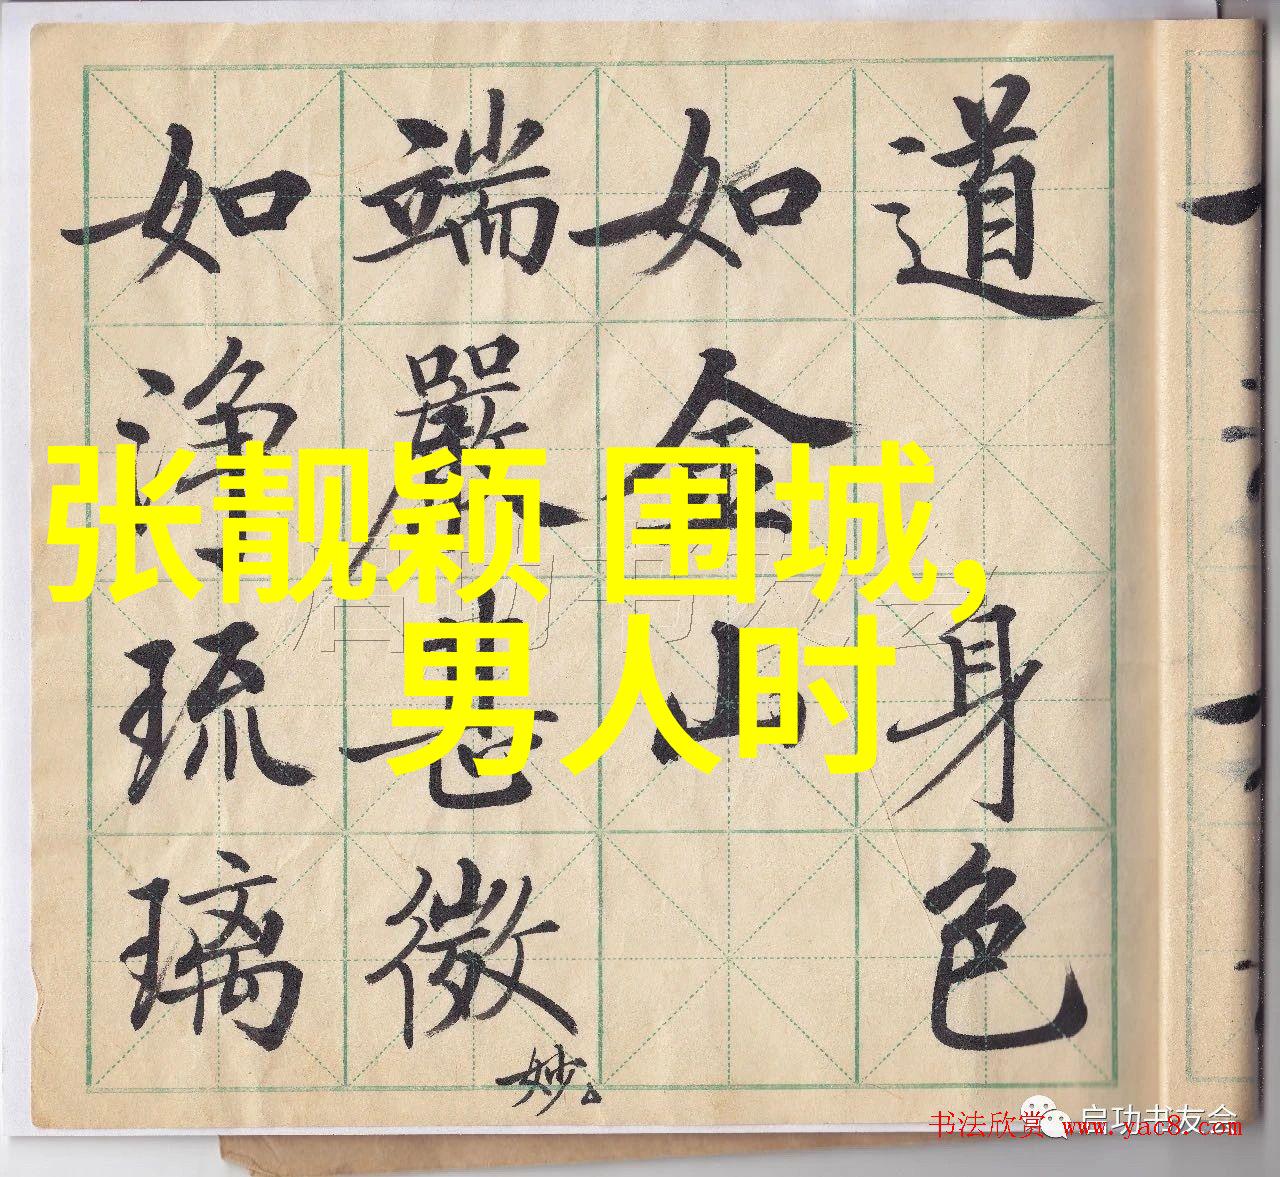 道 身色
如金山
端嚴甚微妙
如淨琉璃
张靓颖 围城,
男人时
启功书友会
书法欣赏 www.yac8.com
启功书友会